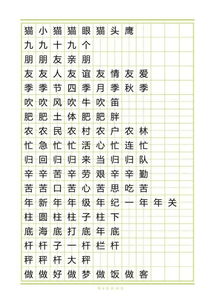 猫小猫猫眼猫头鹰
九九十九个
朋朋友亲朋
友友人友谊友情友爱
季季节四季月季秋季
吹吹风吹牛吹笛
肥肥土体肥肥胖
农农民农村农户农林
忙急忙忙活心忙连忙
归回归归来当归归队
辛辛苦辛劳艰辛辛勤
苦苦口苦心苦思吃苦
年新年年级年纪一年年关
柱圆柱柱子柱下
底海底底年底
杆杆子一杆栏杆
秤秤杆大秤
做做好做梦做饭做客